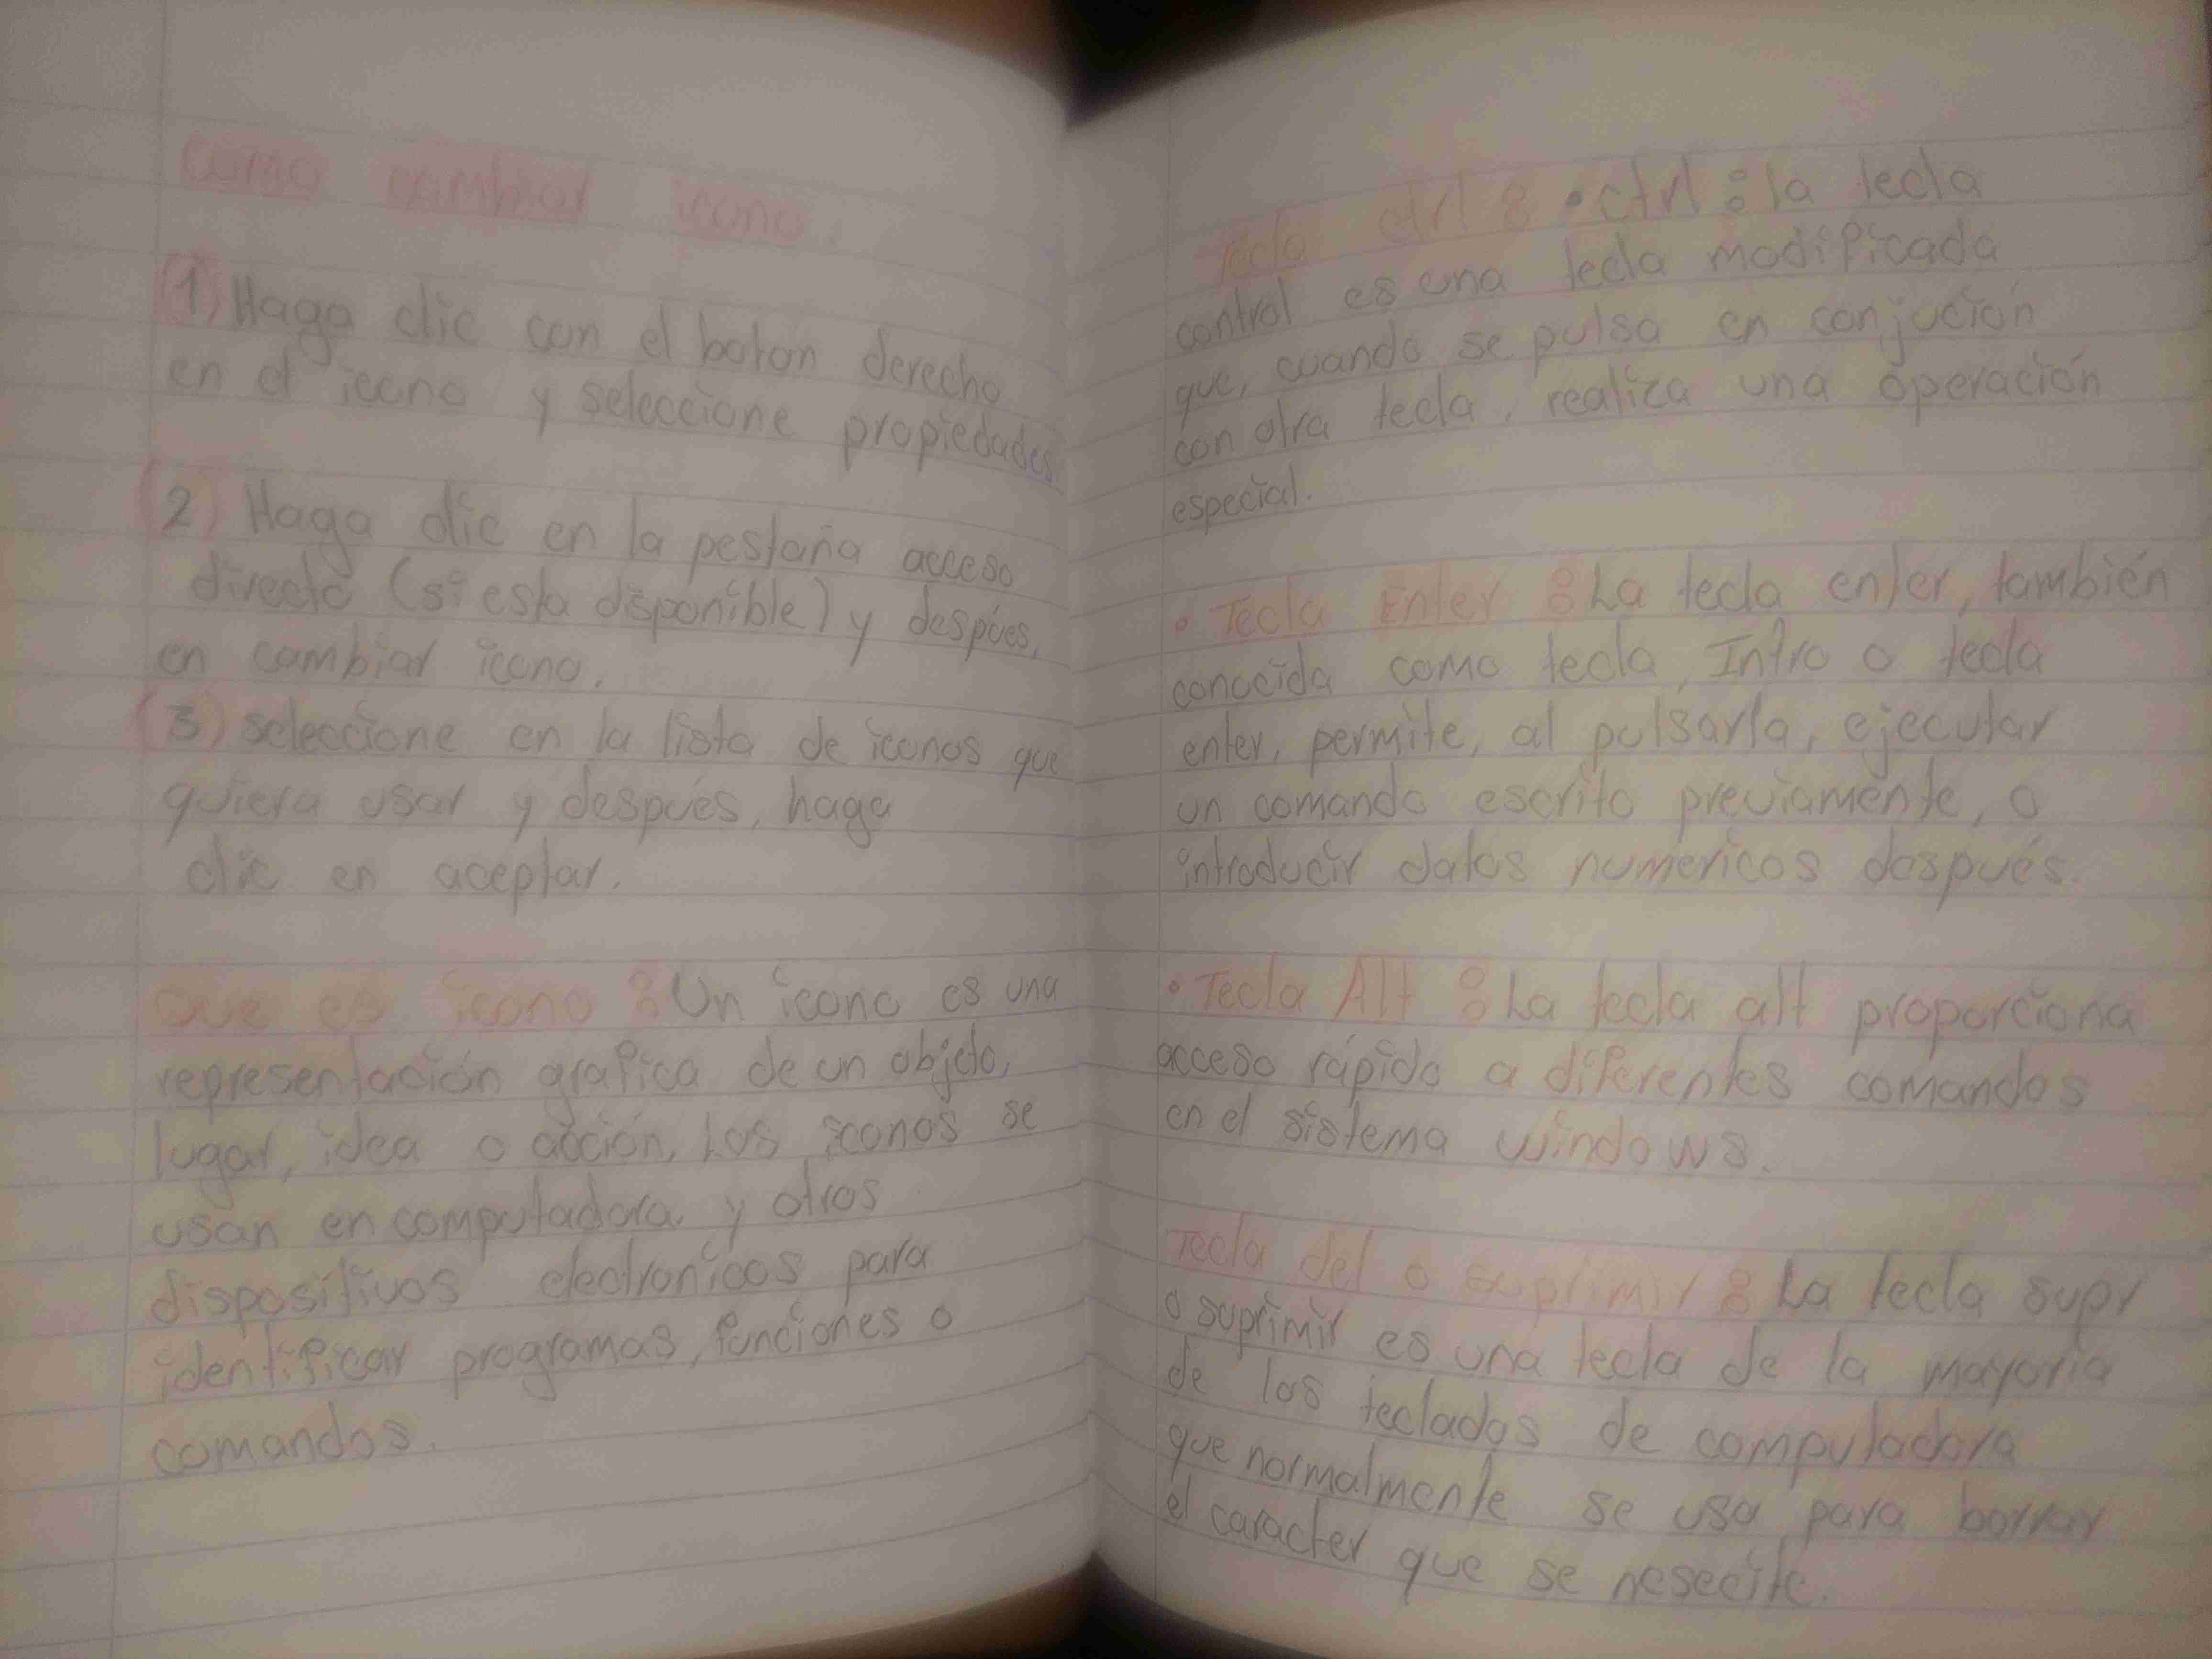 como cambiar icono.
1) Haga clic con el boton derecho
en el icono y seleccione propiedades
2) Haga clic en la pestaña acceso
directo (si esta disponible) y despúes,
en cambiar icono.
(3) seleccione en la lista de iconos que
quiera usar y después, haga
clic en aceptar.
Que es icono : Un icono es una
representación grafica de un objeto,
lugar, idea o acción, Los iconos se
usan en computadora y otros
dispositivos electronicos para
identificar programas, funciones o
comandos.
Tecla ctrl : • ctrl : la tecla
control es una tecla modificada
que, cuando se pulsa en conjución
con otra tecla, realiza una operación
especial.
• Tecla Enter : La tecla enter, también
conocida como tecla, Intro o tecla
enter, permite, al pulsarla, ejecutar
un comando escrito previamente, o
introducir datos numericos después.
• Tecla Alt : La tecla alt proporciona
acceso rápido a diferentes comandos
en el sistema windows.
Tecla del o suprimir : La tecla supr
o suprimir es una tecla de la mayoria
de los teclados de computadora
que normalmente se usa para borrar
el caracter que se nesecite.